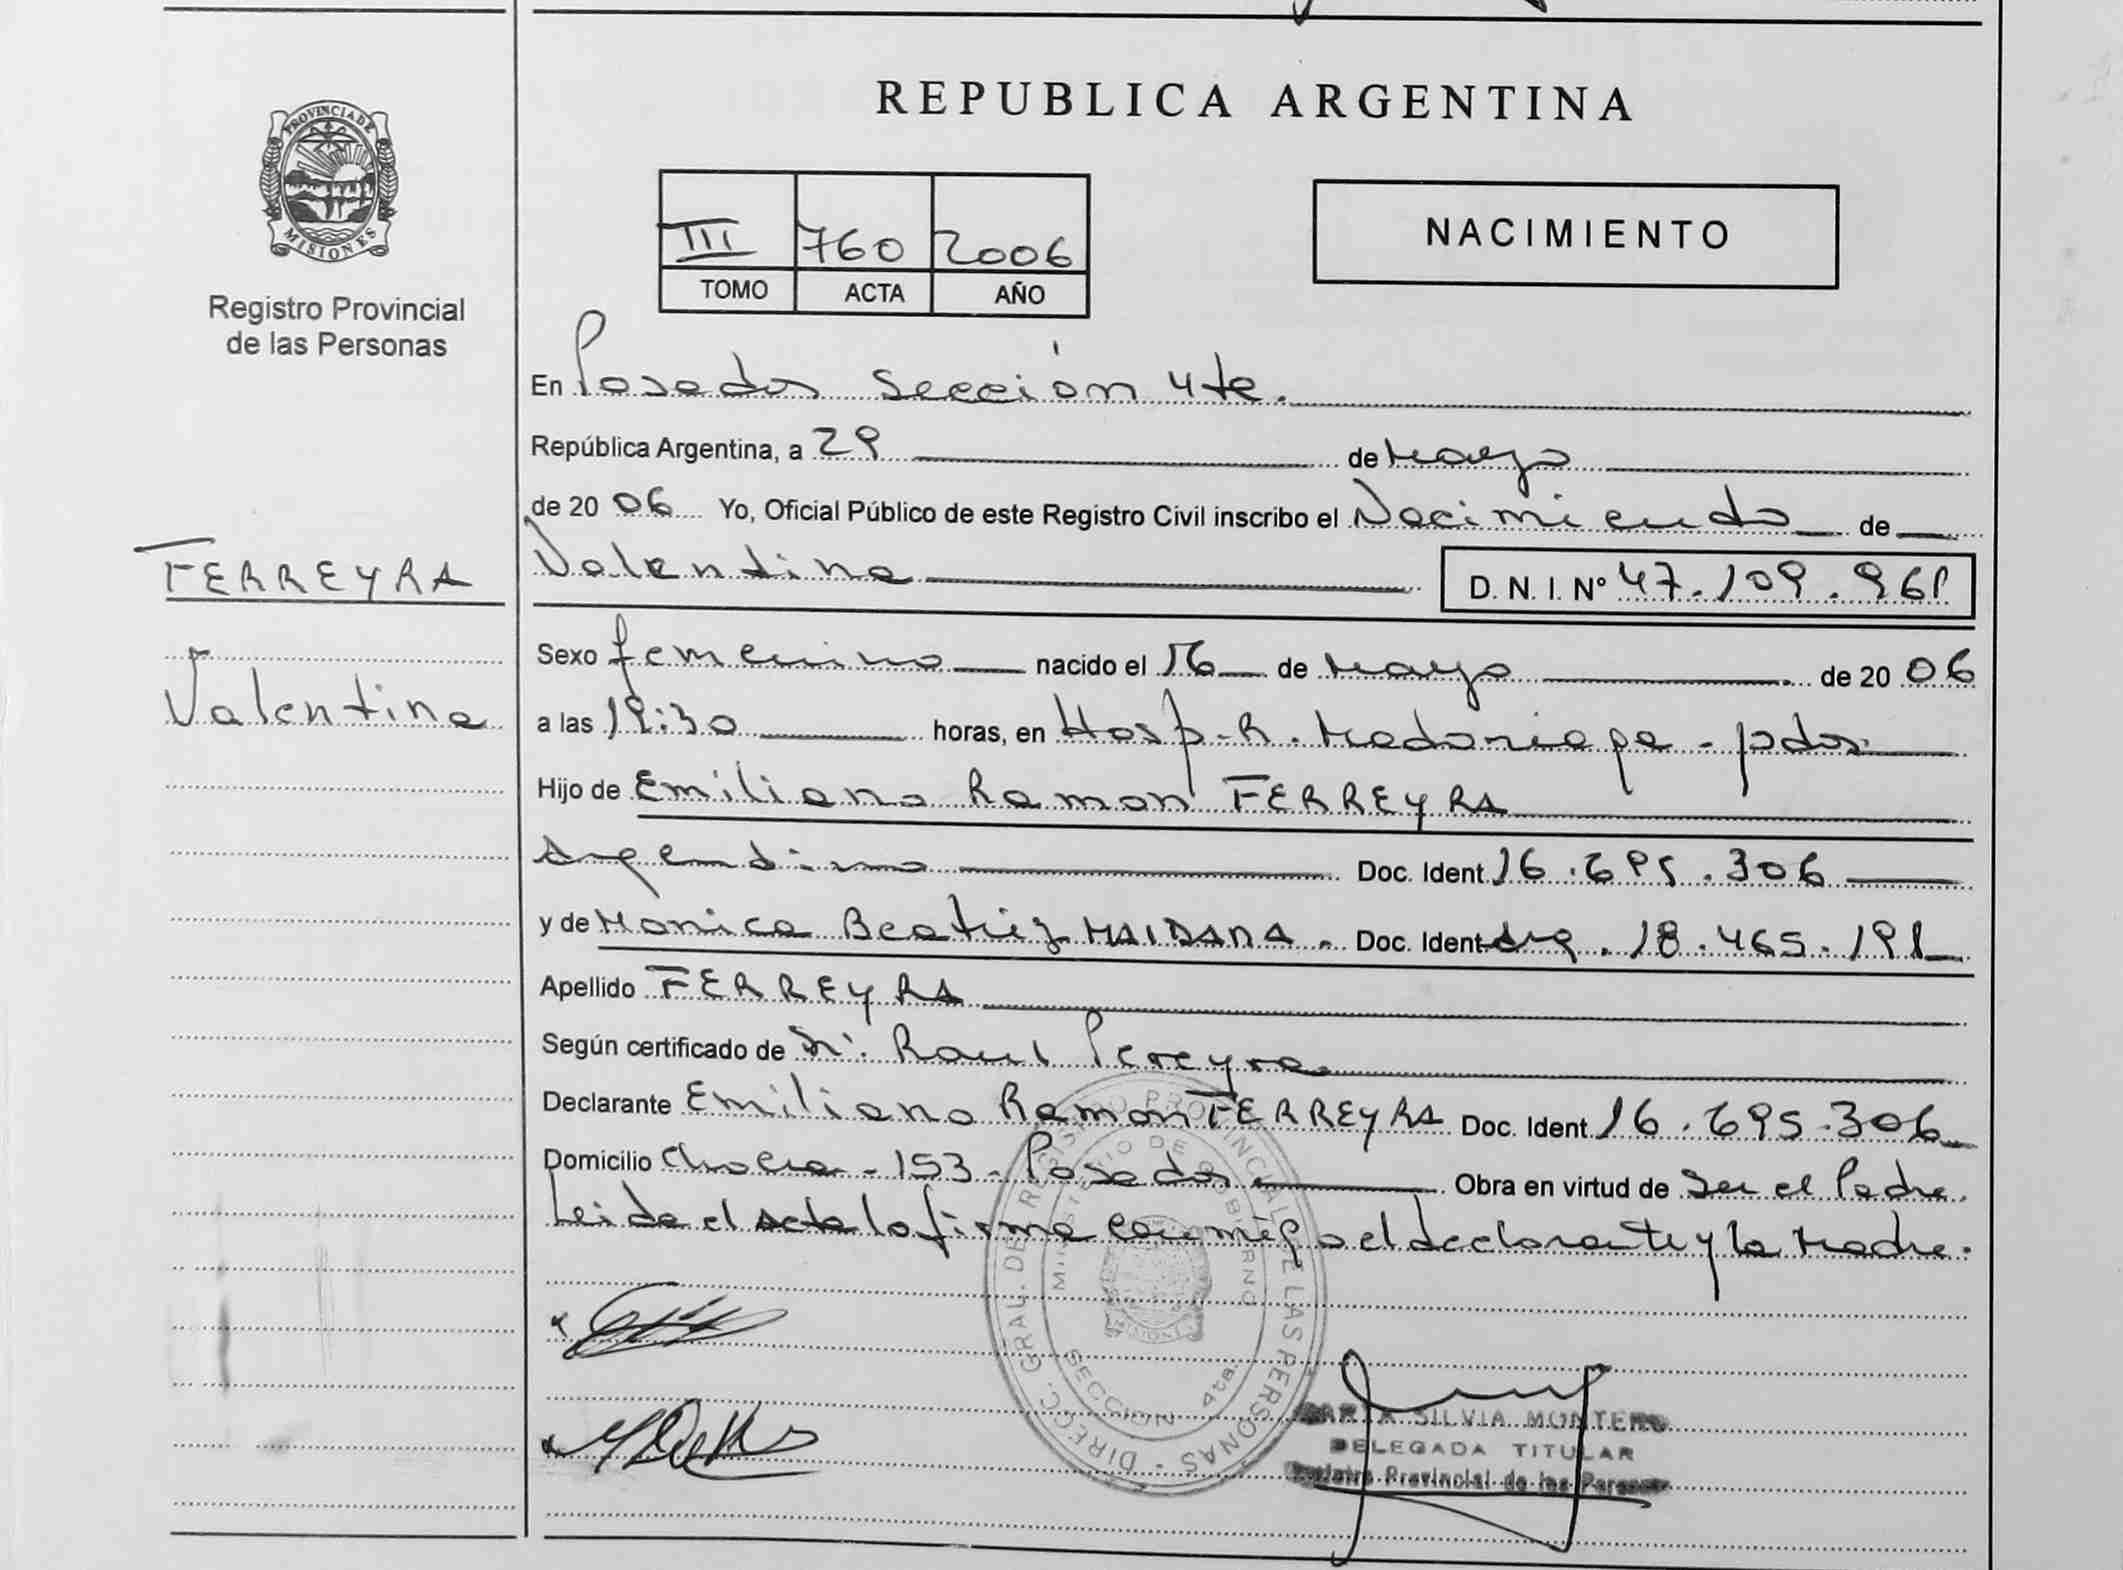 REPUBLICA ARGENTINA
PROVINCIA DE
MISIONES
Registro Provincial
de las Personas
III 760 2006
TOMO ACTA AÑO
NACIMIENTO
En Posadas Sección 4ta.
República Argentina, a 29 de Mayo
de 2006 Yo, Oficial Público de este Registro Civil inscribo el Nacimiento de
FERREYRA
Valentina
Valentina D. N. I. Nº 47.109.961
Sexo femenino nacido el 16 de Mayo de 2006
a las 19:30 horas, en Hosp. R. Madariaga - pdas
Hijo de Emiliano Ramon FERREYRA
Argentino Doc. Ident 16.695.306
y de Mónica Beatriz MAIDANA - Doc. Ident Arg. 18.465.191
Apellido FERREYRA
Según certificado de Dr. Raul Pereyra
Declarante Emiliano Ramon FERREYRA Doc. Ident. 16.695.306
Domicilio 153 - Posadas Obra en virtud de Ser el Padre.
Leida el acta la firma conmigo el declarante y la Madre.
DIRECC. GRAL. DEL REGISTRO PROVINCIAL DE LAS PERSONAS -
MINISTERIO DE GOBIERNO
MISIONES
SECCION 4ta.
SILVIA MONTERO
DELEGADA TITULAR
Provincial de las Personas